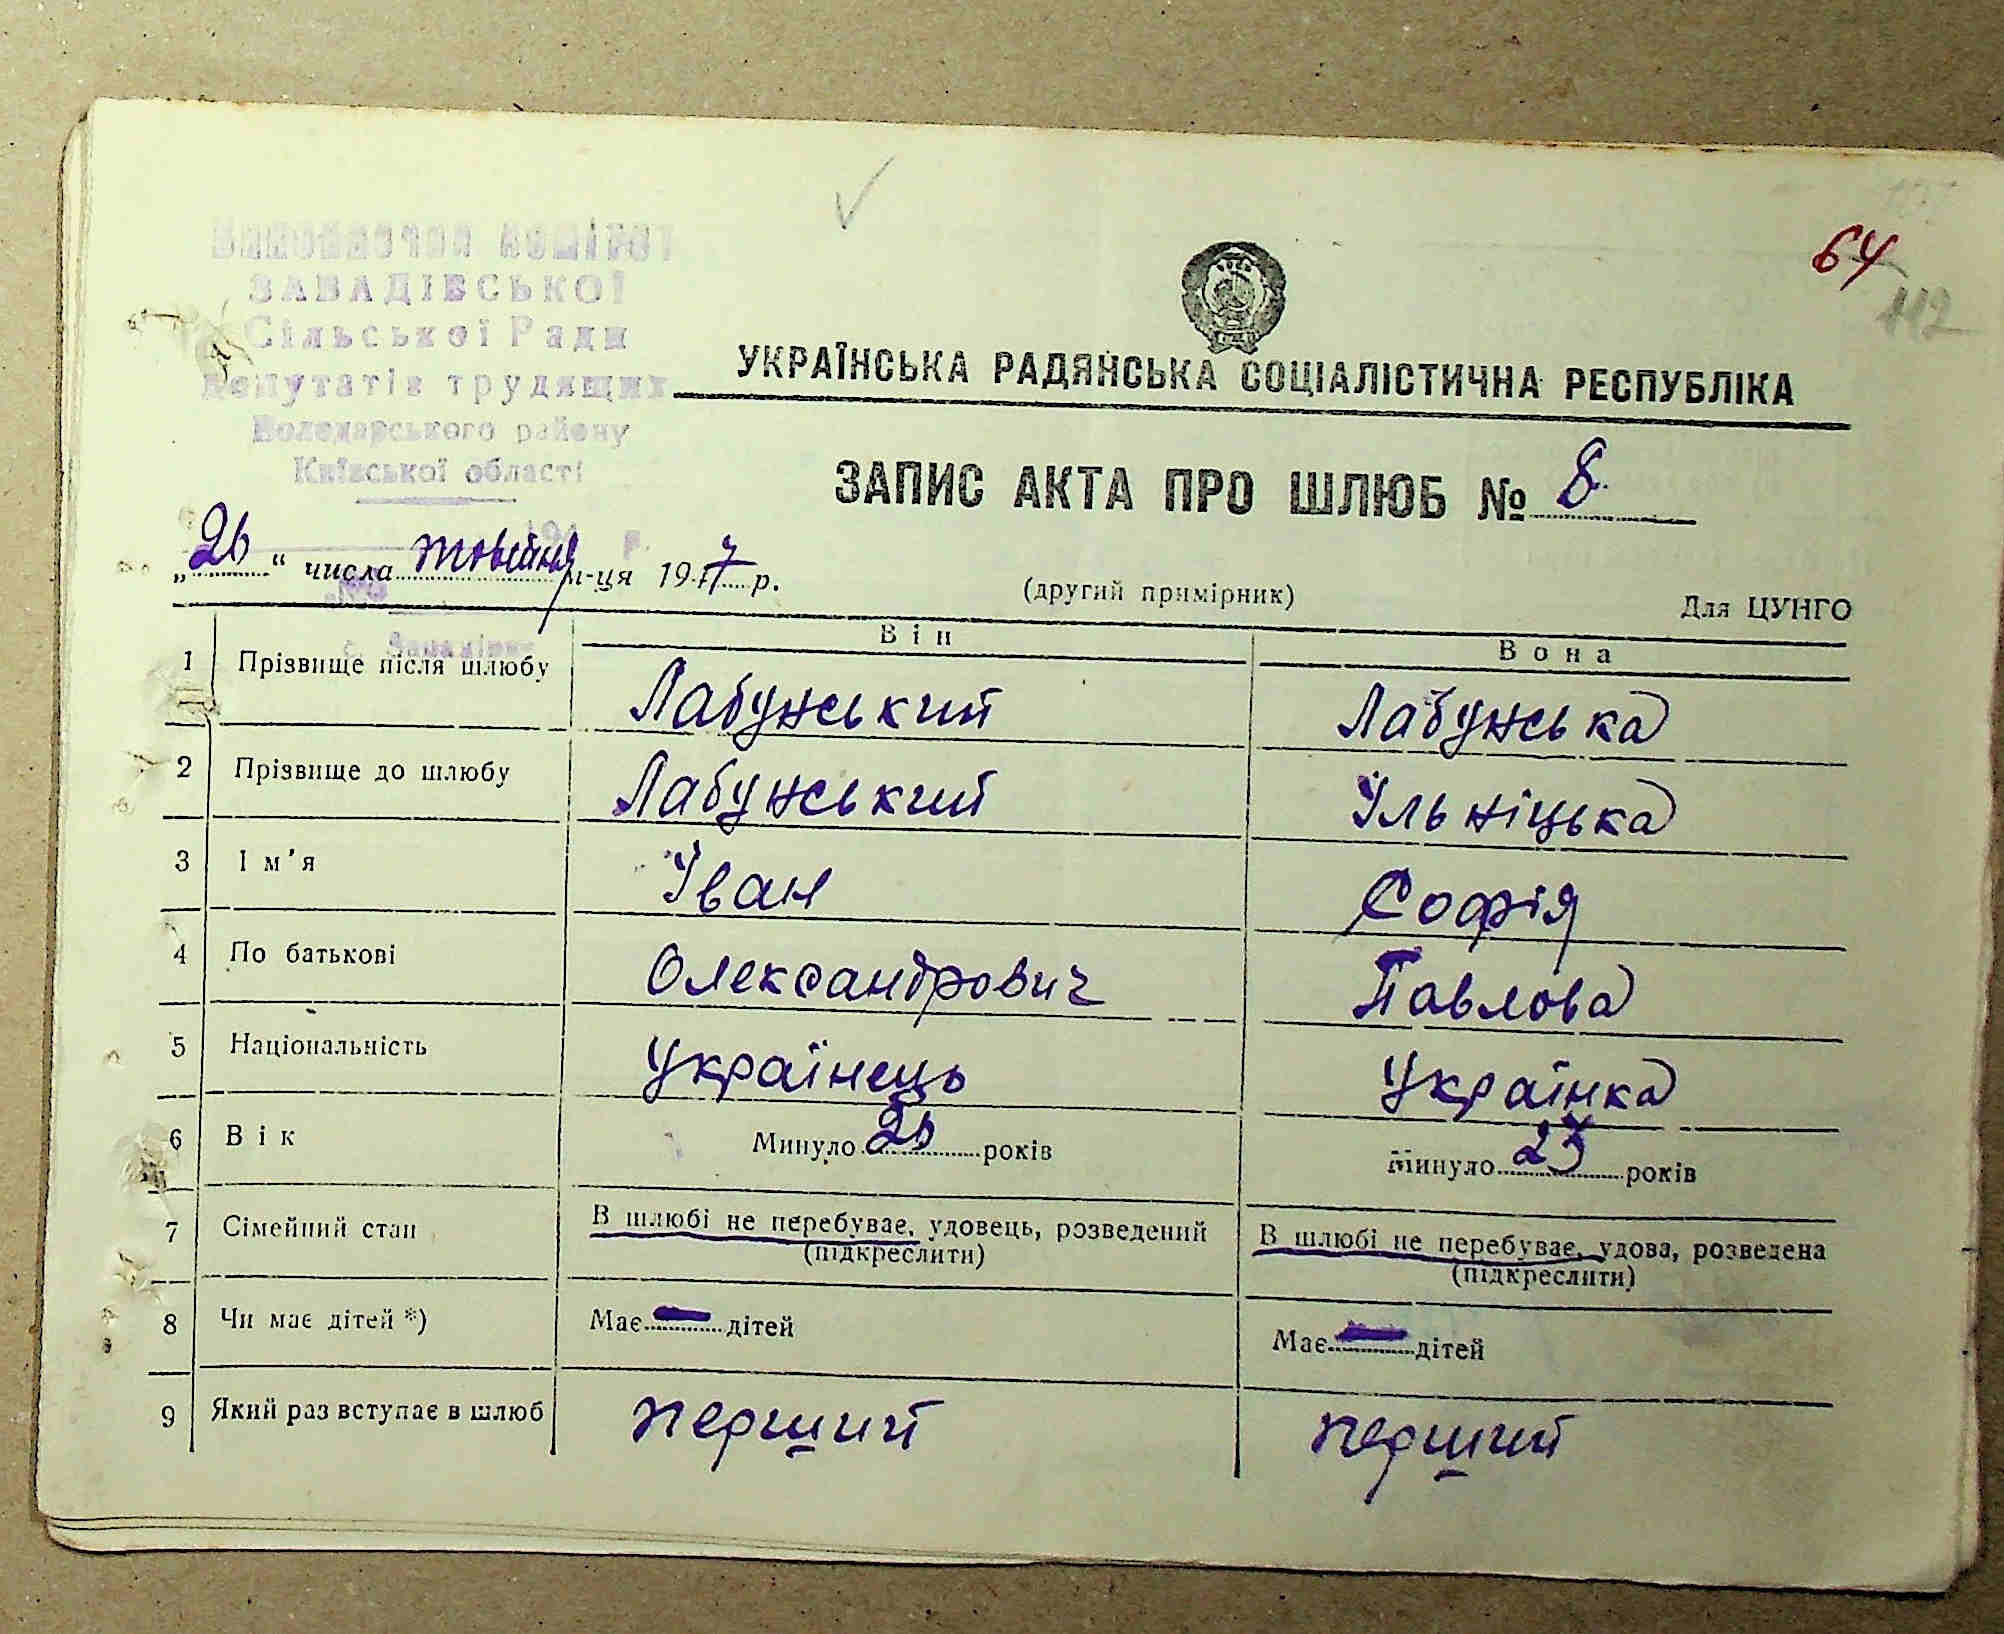 Виконавчий комітет
ЗАВАДІВСЬКОЇ
Сільської Ради
Депутатів трудящих
Володарського району
Київської області
64
112
УКРАЇНСЬКА РАДЯНСЬКА СОЦІАЛІСТИЧНА РЕСПУБЛІКА
ЗАПИС АКТА ПРО ШЛЮБ № 8
„26“ числа жовтня м-ця 1947 р.
(другий примірник)
Для ЦУНГО
с. Завадівка
Він Вона
1 Прізвище після шлюбу Лабунський Лабунська
2 Прізвище до шлюбу Лабунський Ільніцька
3 Ім’я Іван Софія
4 По батькові Олександрович Павлова
5 Національність Українець Українка
6 Вік Минуло років Минуло 23 років
7 Сімейний стан В шлюбі не перебуває, удовець, розведений В шлюбі не перебуває, удова, розведена
(підкреслити) (підкреслити)
8 Чи має дітей *) Має — дітей Має — дітей
9 Який раз вступає в шлюб перший перший